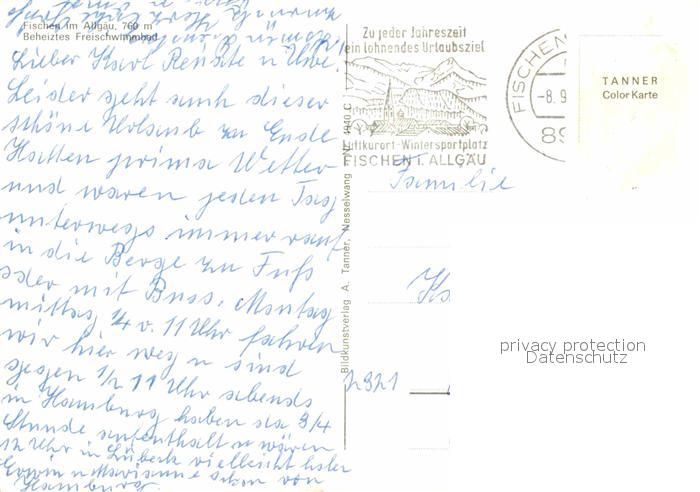 Fischen im Allgäu, 760 m
Beheiztes Freischwimmbad
Lieber Karl Renate u Uwe.
Leider geht auch dieser
schöne Urlaub zu Ende
Hatten prima Wetter
und waren jeden Tag
unterwegs immer rauf
in die Berge zu Fuß
oder mit Buss. Montag
mittag 1/4 v. 11 Uhr fahren
wir hier weg u sind
gegen 1/2 11 Uhr abends
in Hamburg haben da 3/4
Stunde aufenthalt u wären
12 Uhr in Lübeck vielleicht holen
Erwin u Marianne schon von
Hamburg
Bildkunstverlag A. Tanner, Nesselwang
1940 C
Zu jeder Jahreszeit
ein lohnendes Urlaubsziel
Luftkurort-Wintersportplatz
FISCHEN i. ALLGÄU
FISCHEN
-8.9
89
TANNER
Color Karte
Familie
2321
privacy protection
Datenschutz